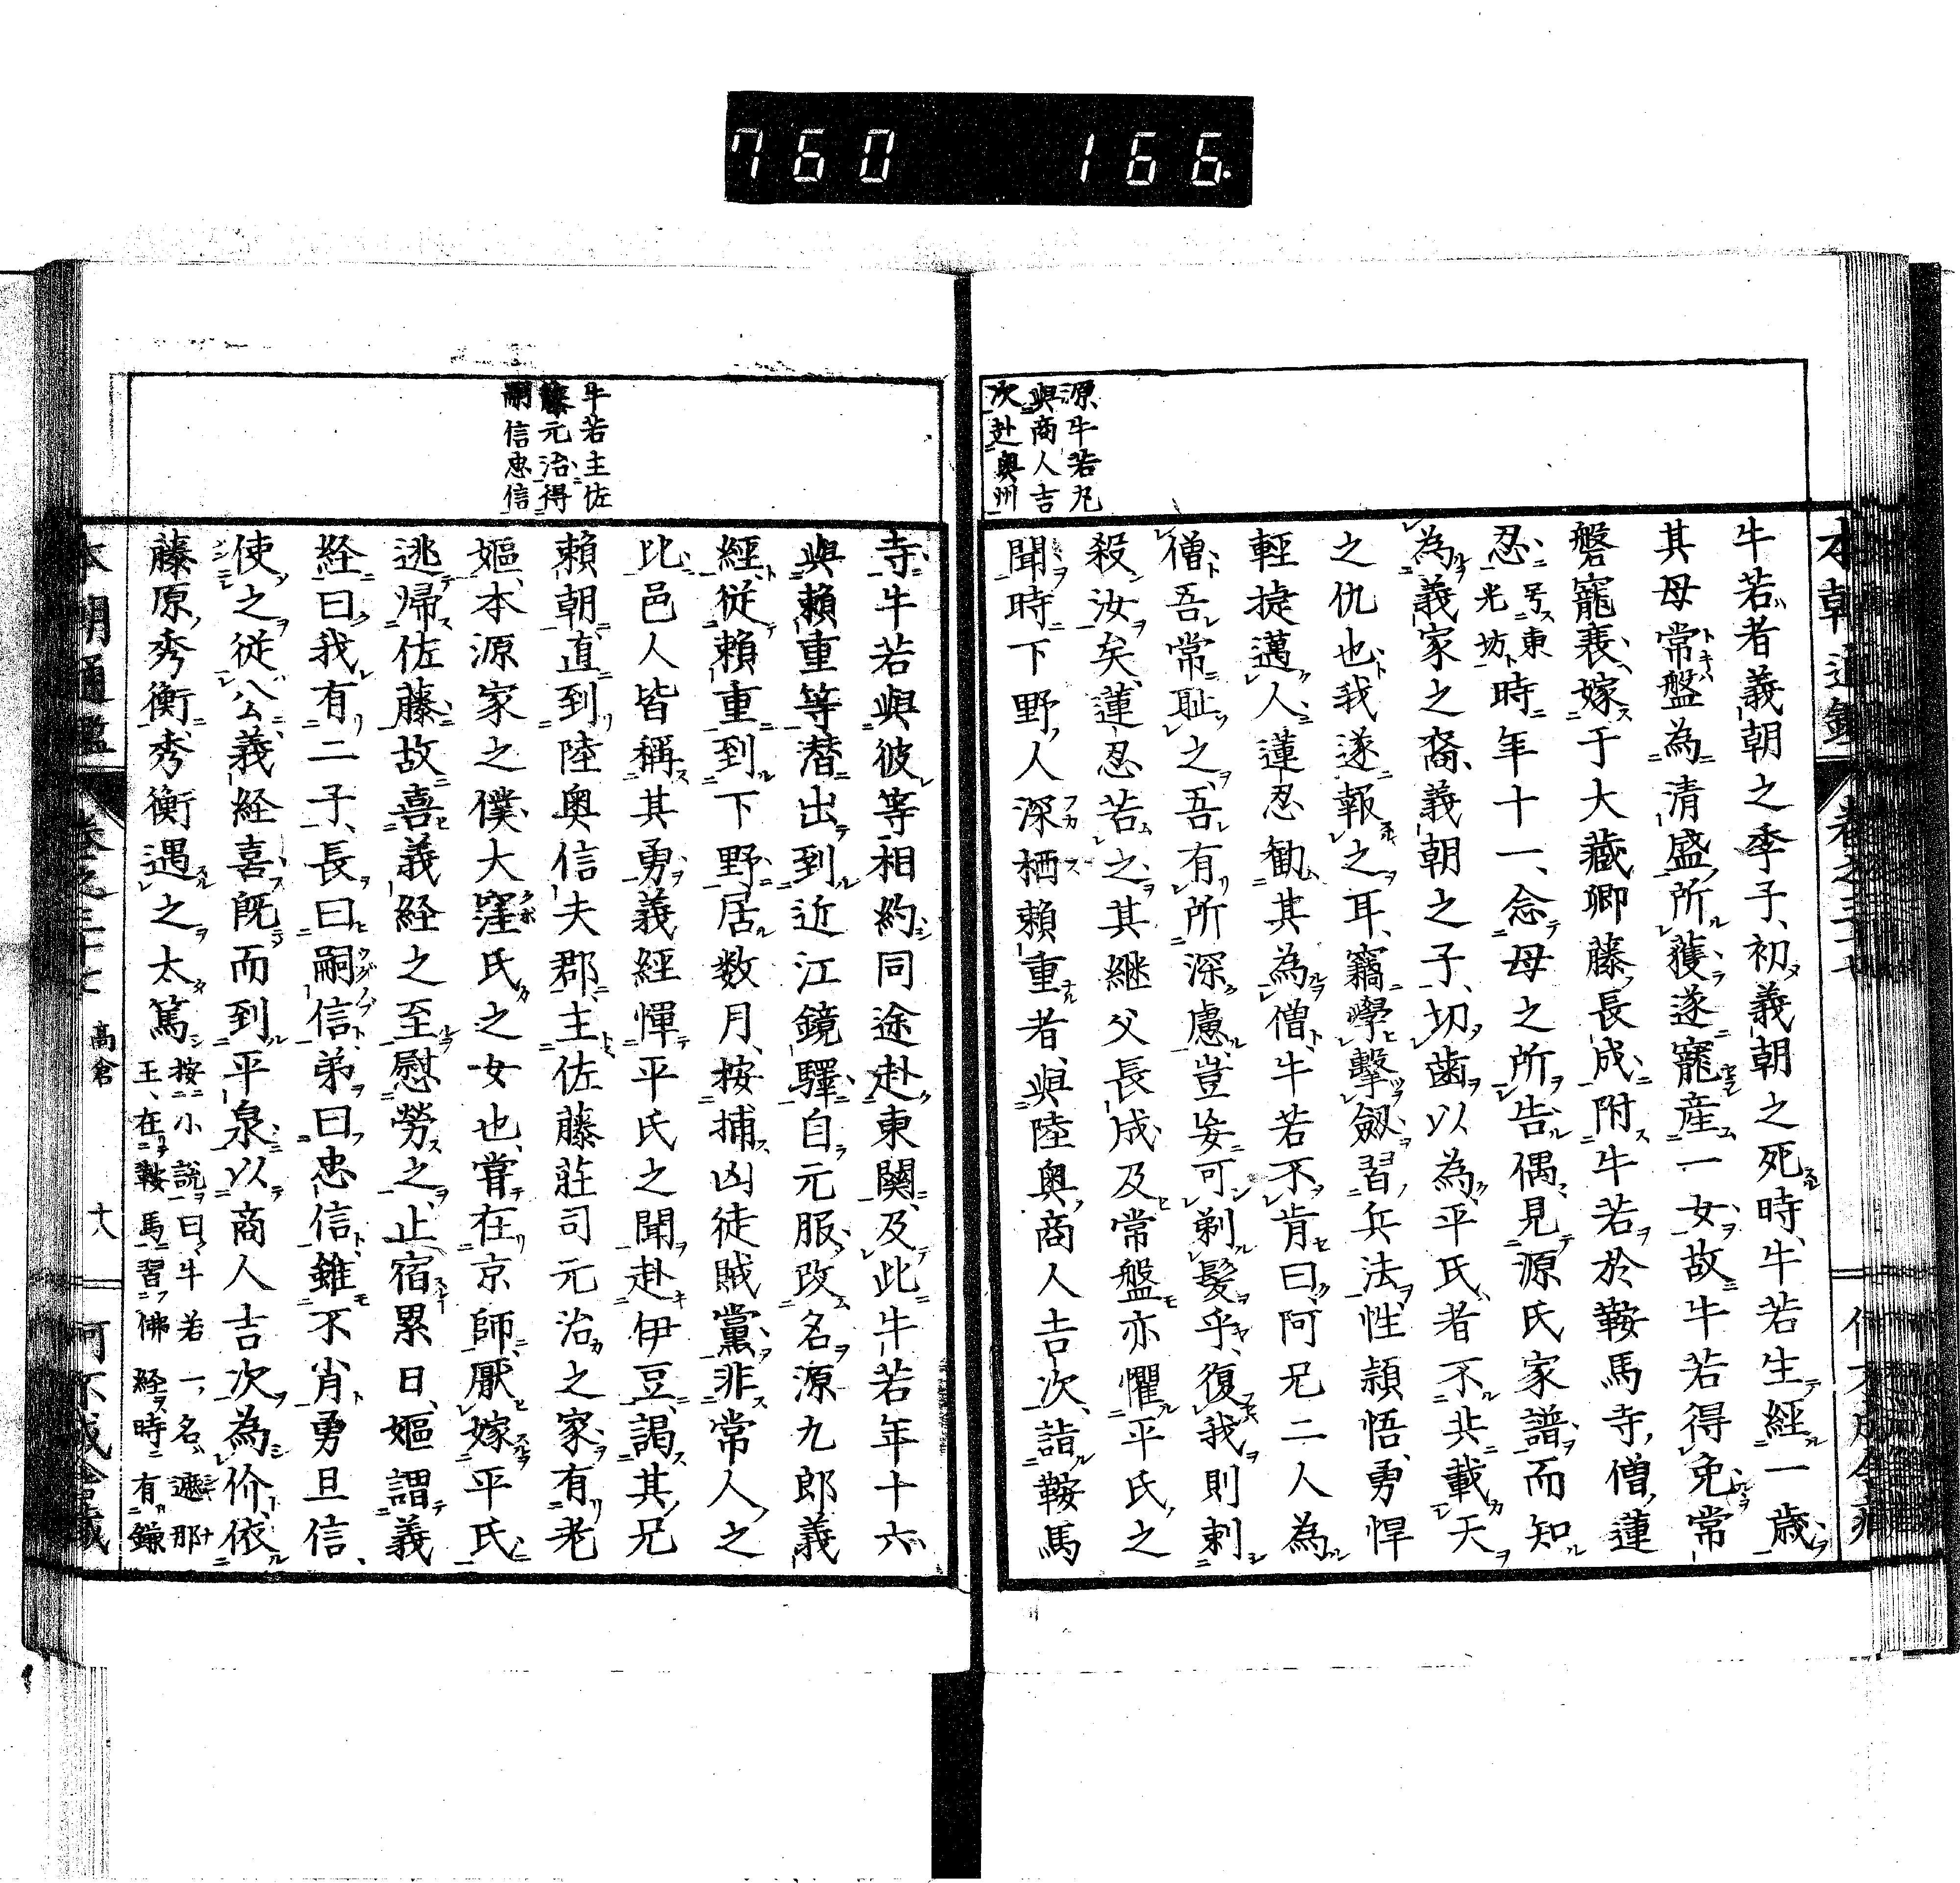 760 166
源牛若丸
與商人吉
次赴奥州
牛若者義朝之季子、初義朝之死時、牛若生經一歳
其母常盤為清盛所獲遂寵産一女故牛若得免常
磐寵衰、嫁于大藏卿藤長成附牛若於鞍馬寺僧蓮
忍号東光坊時年十一、念母之所告偶見源氏家譜而知
為義家之裔、義朝之子、切齒以為平氏者不共載天
之仇也我遂報之耳、竊學擊劔習兵法性頴悟、勇悍
輕捷邁人蓮忍勧其為僧、牛若不肯曰、阿兄二人為
僧吾常耻之、吾有所深慮、豈妄可剃髪乎、復我則刺
殺汝矣、蓮忍苦之其継父長成及常盤亦懼平氏之
聞時下野人深栖賴重者、與陸奥商人吉次、詣鞍馬
牛若主佐
藤元治得
嗣信忠信
寺牛若與彼等相約同途赴東關、及此牛若年十六
與賴重等潜出到近江鏡驛自元服、改名源九郎義
經、從賴重到下野居数月、按捕凶徒賊黨、非常人之
比邑人皆稱其勇義經憚平氏之聞赴伊豆、謁其兄
賴朝直到陸奥信夫郡、主佐藤莊司元治之家有老
嫗、本源家之僕、大窪氏之女也、嘗在京師厭嫁平氏
逃歸佐藤故喜義経之至慰勞之、止宿累日、嫗謂義
経曰我有二子、長曰嗣信弟曰忠信雖不肖勇且信、
使之従公義経喜既而到平泉以商人吉次為价、依
藤原秀衡、秀衡遇之太篤按小説曰牛若一名遮那
王、在鞍馬習佛経時有鎌
本朝通鑑 卷之三十七 高倉 十八